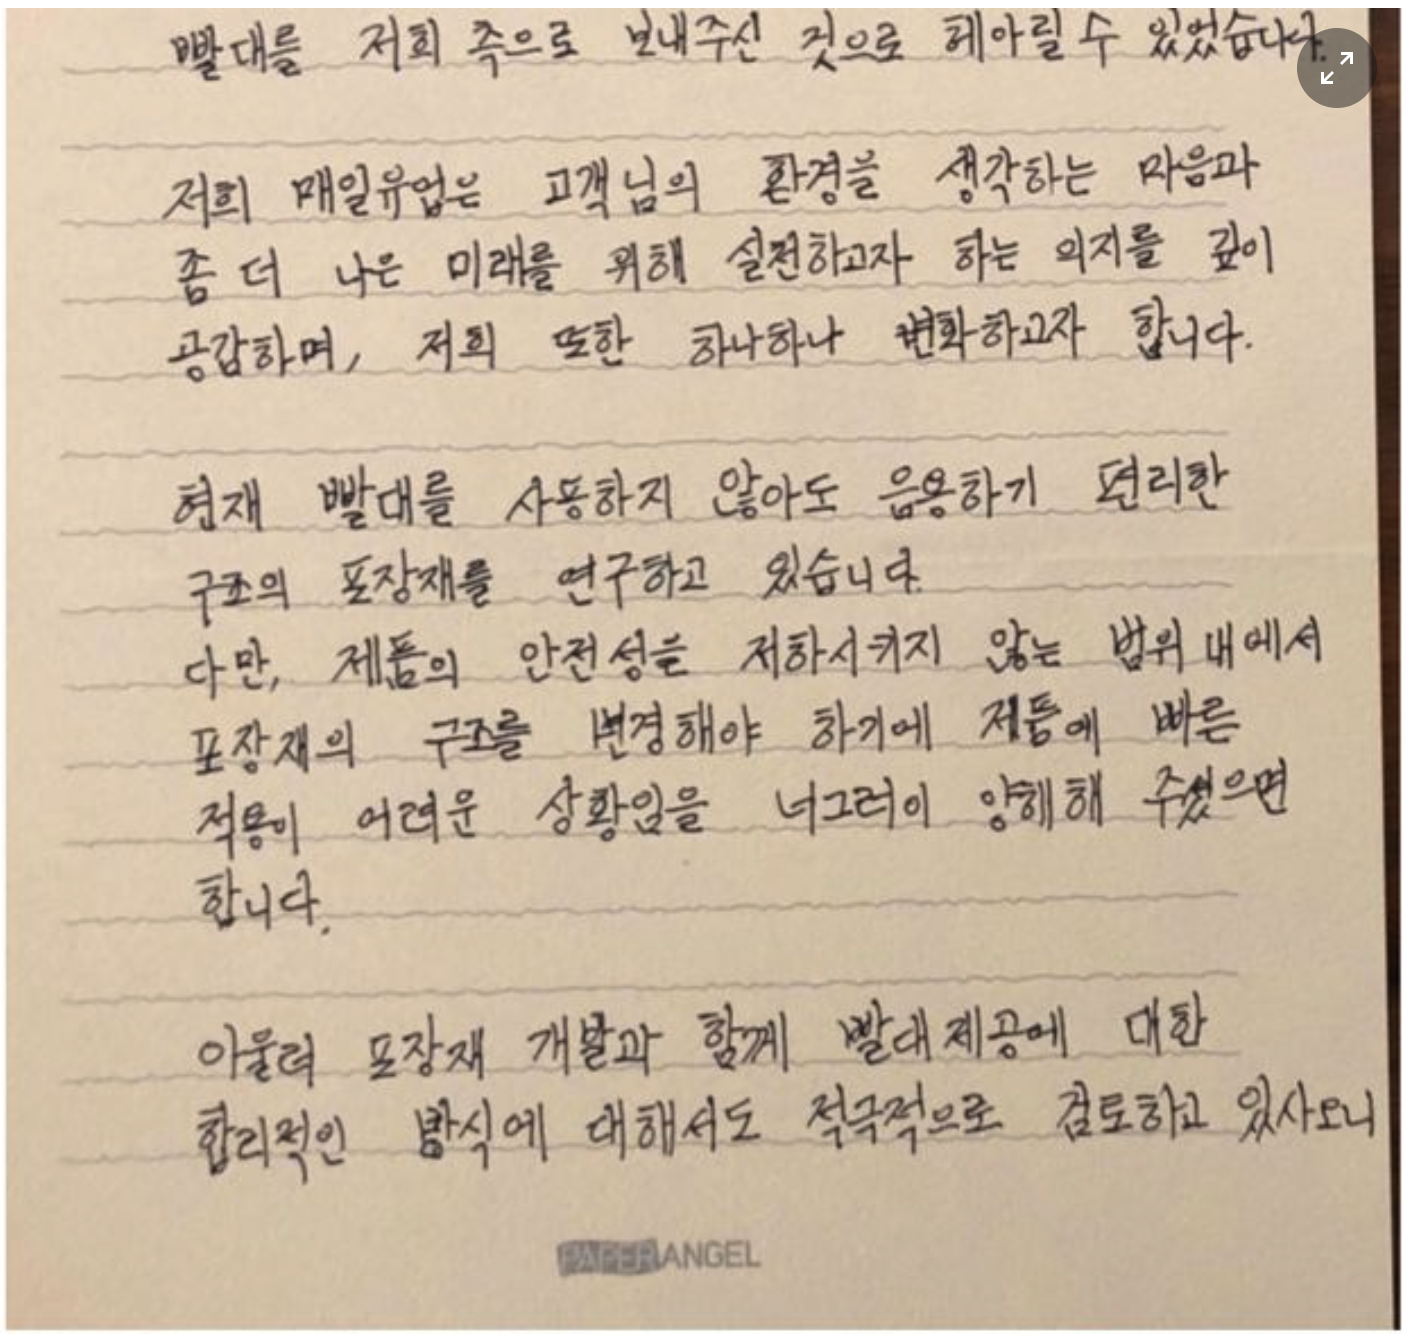 빨대를 저희 측으로 보내주신 것으로 헤아릴 수 있었습니다.
저희 매일유업은 고객님의 환경을 생각하는 마음과
좀 더 나은 미래를 위해 실천하고자 하는 의지를 깊이
공감하며, 저희 또한 하나하나 변화하고자 합니다.
현재 빨대를 사용하지 않아도 음용하기 편리한
구조의 포장재를 연구하고 있습니다.
다만, 제품의 안전성을 저하시키지 않는 범위 내에서
포장재의 구조를 변경해야 하기에 제품에 빠른
적용이 어려운 상황임을 너그러이 양해해 주셨으면
합니다.
아울러 포장재 개발과 함께 빨대 제공에 대한
합리적인 방식에 대해서도 적극적으로 검토하고 있사오니
PAPERANGEL